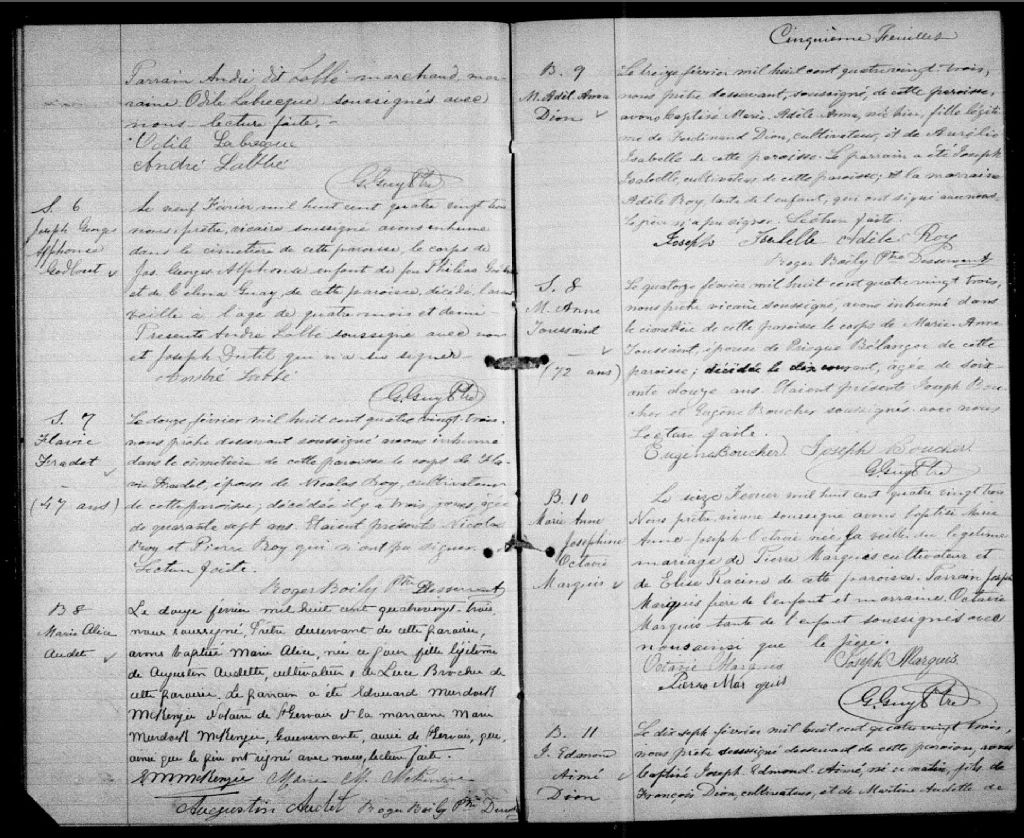 Parrain André dit Labbé marchand, mar-
raine Odile Labrecque, soussignés avec
nous - lecture faite. -
Odile Labrecque
André Labbé
G. Guy Ptre
S. 6
Joseph Georges
Alphonse
Godbout
Le neuf Février mil huit cent quatre vingt trois
nous prêtre, vicaire soussigné avons inhumé
dans le cimetière de cette paroisse, le corps de
Jos. Georges Alphonse enfant de feu Philéas
et de Célena Guay, de cette paroisse, décédé l'avant
veille à l'age de quatre mois et demi
Présents André Labbé soussigné avec nous
et Joseph Dutil qui n'a su signer -
André Labbé
G. Guy Ptre
S. 7
Flavie
Fradet
(47 ans)
Le douze février mil huit cent quatre vingt trois,
nous prêtre desservant soussigné avons inhumé
dans le cimetière de cette paroisse le corps de Fla-
vie Fradet, épouse de Nicolas Roy, cultivateur
de cette paroisse; décédée il y a trois jours, agée
de quarante sept ans. Etaient présents Nicolas
Roy et Pierre Roy qui n'ont pu signer.
Lecture faite.
Roger Boily Ptre Desservant
B 8
Marie Alice
Audet
Le douze février mil huit cent quatrevingt-trois,
nous soussigné, Prêtre desservant de cette paroisse,
avons baptisé Marie Alice, née ce jour fille légitime
de Augustin Audette, cultivateur, & de Luce Brochu de
cette paroisse. Le parrain a été Edouard Murdock
McKenzie Notaire de St Gervais & la marraine Marie
Murdock McKenzie, Gouvernante, aussi de St Gervais, qui,
ainsi que le père ont signé avec nous, lecture faite.
McKenzie Marie M. McKenzie
Augustin Audet Roger Boily Ptre Desst
Cinquième Feuillet
B. 9
M. Adèl. Anna
Dion
Le treize février mil huit cent quatre vingt trois,
nous prêtre desservant, soussigné, de cette paroisse,
avons baptisé Marie Adèle Anna, née hier, fille légiti-
me de Ferdinand Dion, cultivateur, et de Aurélie
Isabelle de cette paroisse. Le parrain a été Joseph
Isabelle, cultivateur de cette paroisse; et la marraine
Adèle Roy, tante de l'enfant, qui ont signé avec nous.
Le père n'a pu signer. Lecture faite.
Joseph Isabelle Adèle Roy
Roger Boily Ptre Desservant
S. 8
M. Anne
Toussaint
(72 ans)
Le quatorze février mil huit cent quatre vingt trois,
nous prêtre vicaire soussigné, avons inhumé dans
le cimetière de cette paroisse le corps de Marie Anne
Toussaint, épouse de Prisque Bélanger de cette
paroisse; décédée le dix courant, agée de soix-
ante douze ans. Etaient présents Joseph Bou-
cher et Eugène Boucher soussignés avec nous
Lecture faite.
Eugène Boucher Joseph Boucher
G. Guy Ptre
B. 10
Marie Anne
Joséphine
Octavie
Marquis
Le seize Février mil huit cent quatre vingt trois
Nous prêtre vicaire soussigné avons baptisé Marie
Anne Joseph Octavie née la veille du légitime
mariage de Pierre Marquis cultivateur et
de Elise Racine de cette paroisse. Parrain Joseph
Marquis frère de l'enfant et marraine Octavie
Marquis tante de l'enfant soussignés avec
nous ainsi que le père.
Octavie Marquis Joseph Marquis
Pierre Marquis
G. Guy Ptre
B. 11
J. Edmond
Aimé
Dion
Le dix sept février mil huit cent quatre vingt trois,
nous prêtre soussigné desservant de cette paroisse, avons
baptisé Joseph Edmond Aimé, né ce matin, fils de
François Dion, cultivateur, et de Martine Audette de